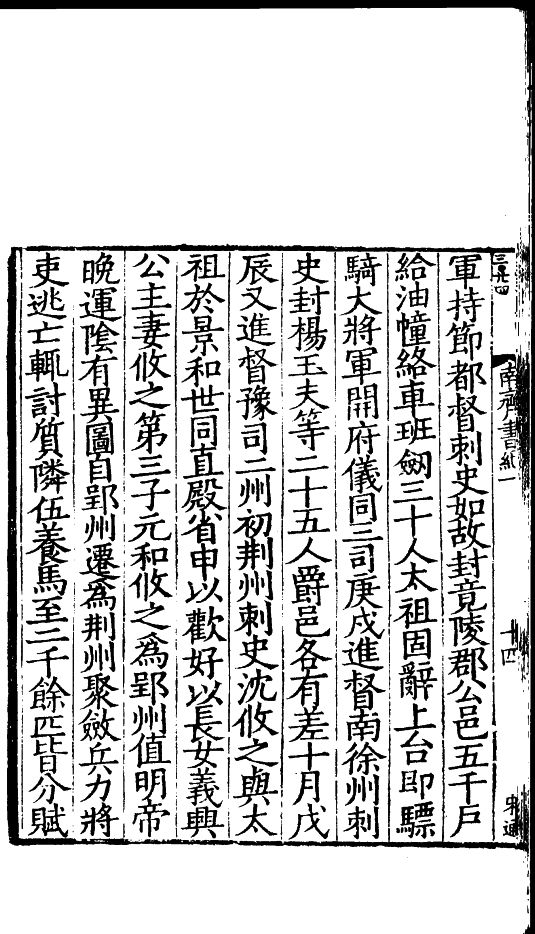 南齊書紀一
十四
軍持節都督刺史如故封竟陵郡公邑五千戶
給油幢絡車班劒三十人太祖固辭上台即驃
騎大將軍開府儀同三司庚戌進督南徐州刺
史封楊玉夫等二十五人爵邑各有差十月戊
辰又進督豫司二州初荆州刺史沈攸之與太
祖於景和世同直殿省申以歡好以長女義興
公主妻攸之第三子元和攸之爲郢州值明帝
晚運陰有異圖自郢州遷爲荆州聚斂兵力將
吏逃亡輒討質隣伍養馬至二千餘匹皆分賦